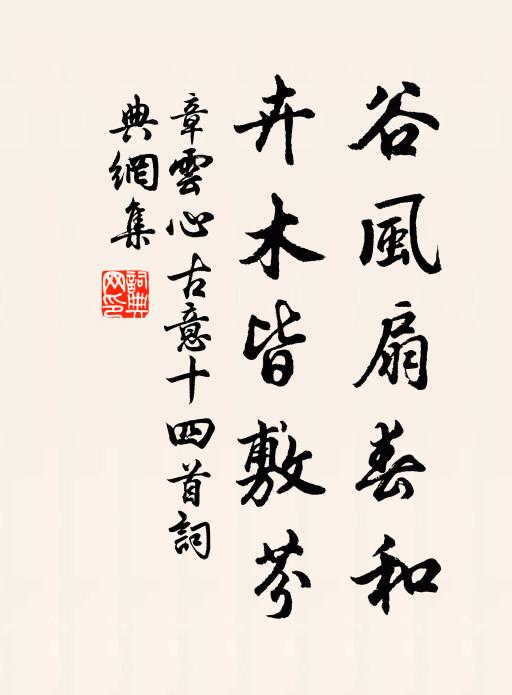 谷風扇春和
卉木皆敷芬
章雲心古意十四首詞
典網集
詞典
网印